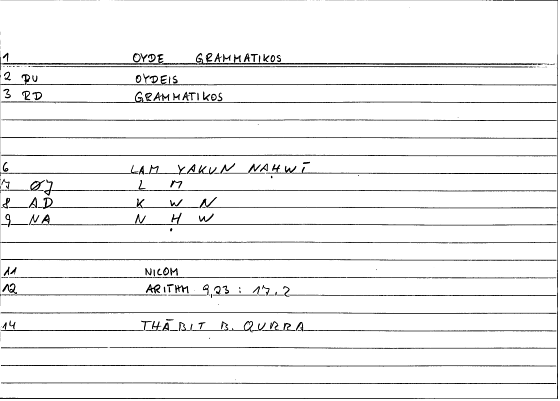 1 OYDE GRAMMATIKOS
2 DU OYDEIS
3 RD GRAMMATIKOS
6 LAM YAKUN NAḤWĪ
7 ØJ L M
8 A.D K W N
9 NA N Ḥ W
11 NICOM
12 ARITHM 9,23 : 17.2
14 THĀBIT B. QURRA